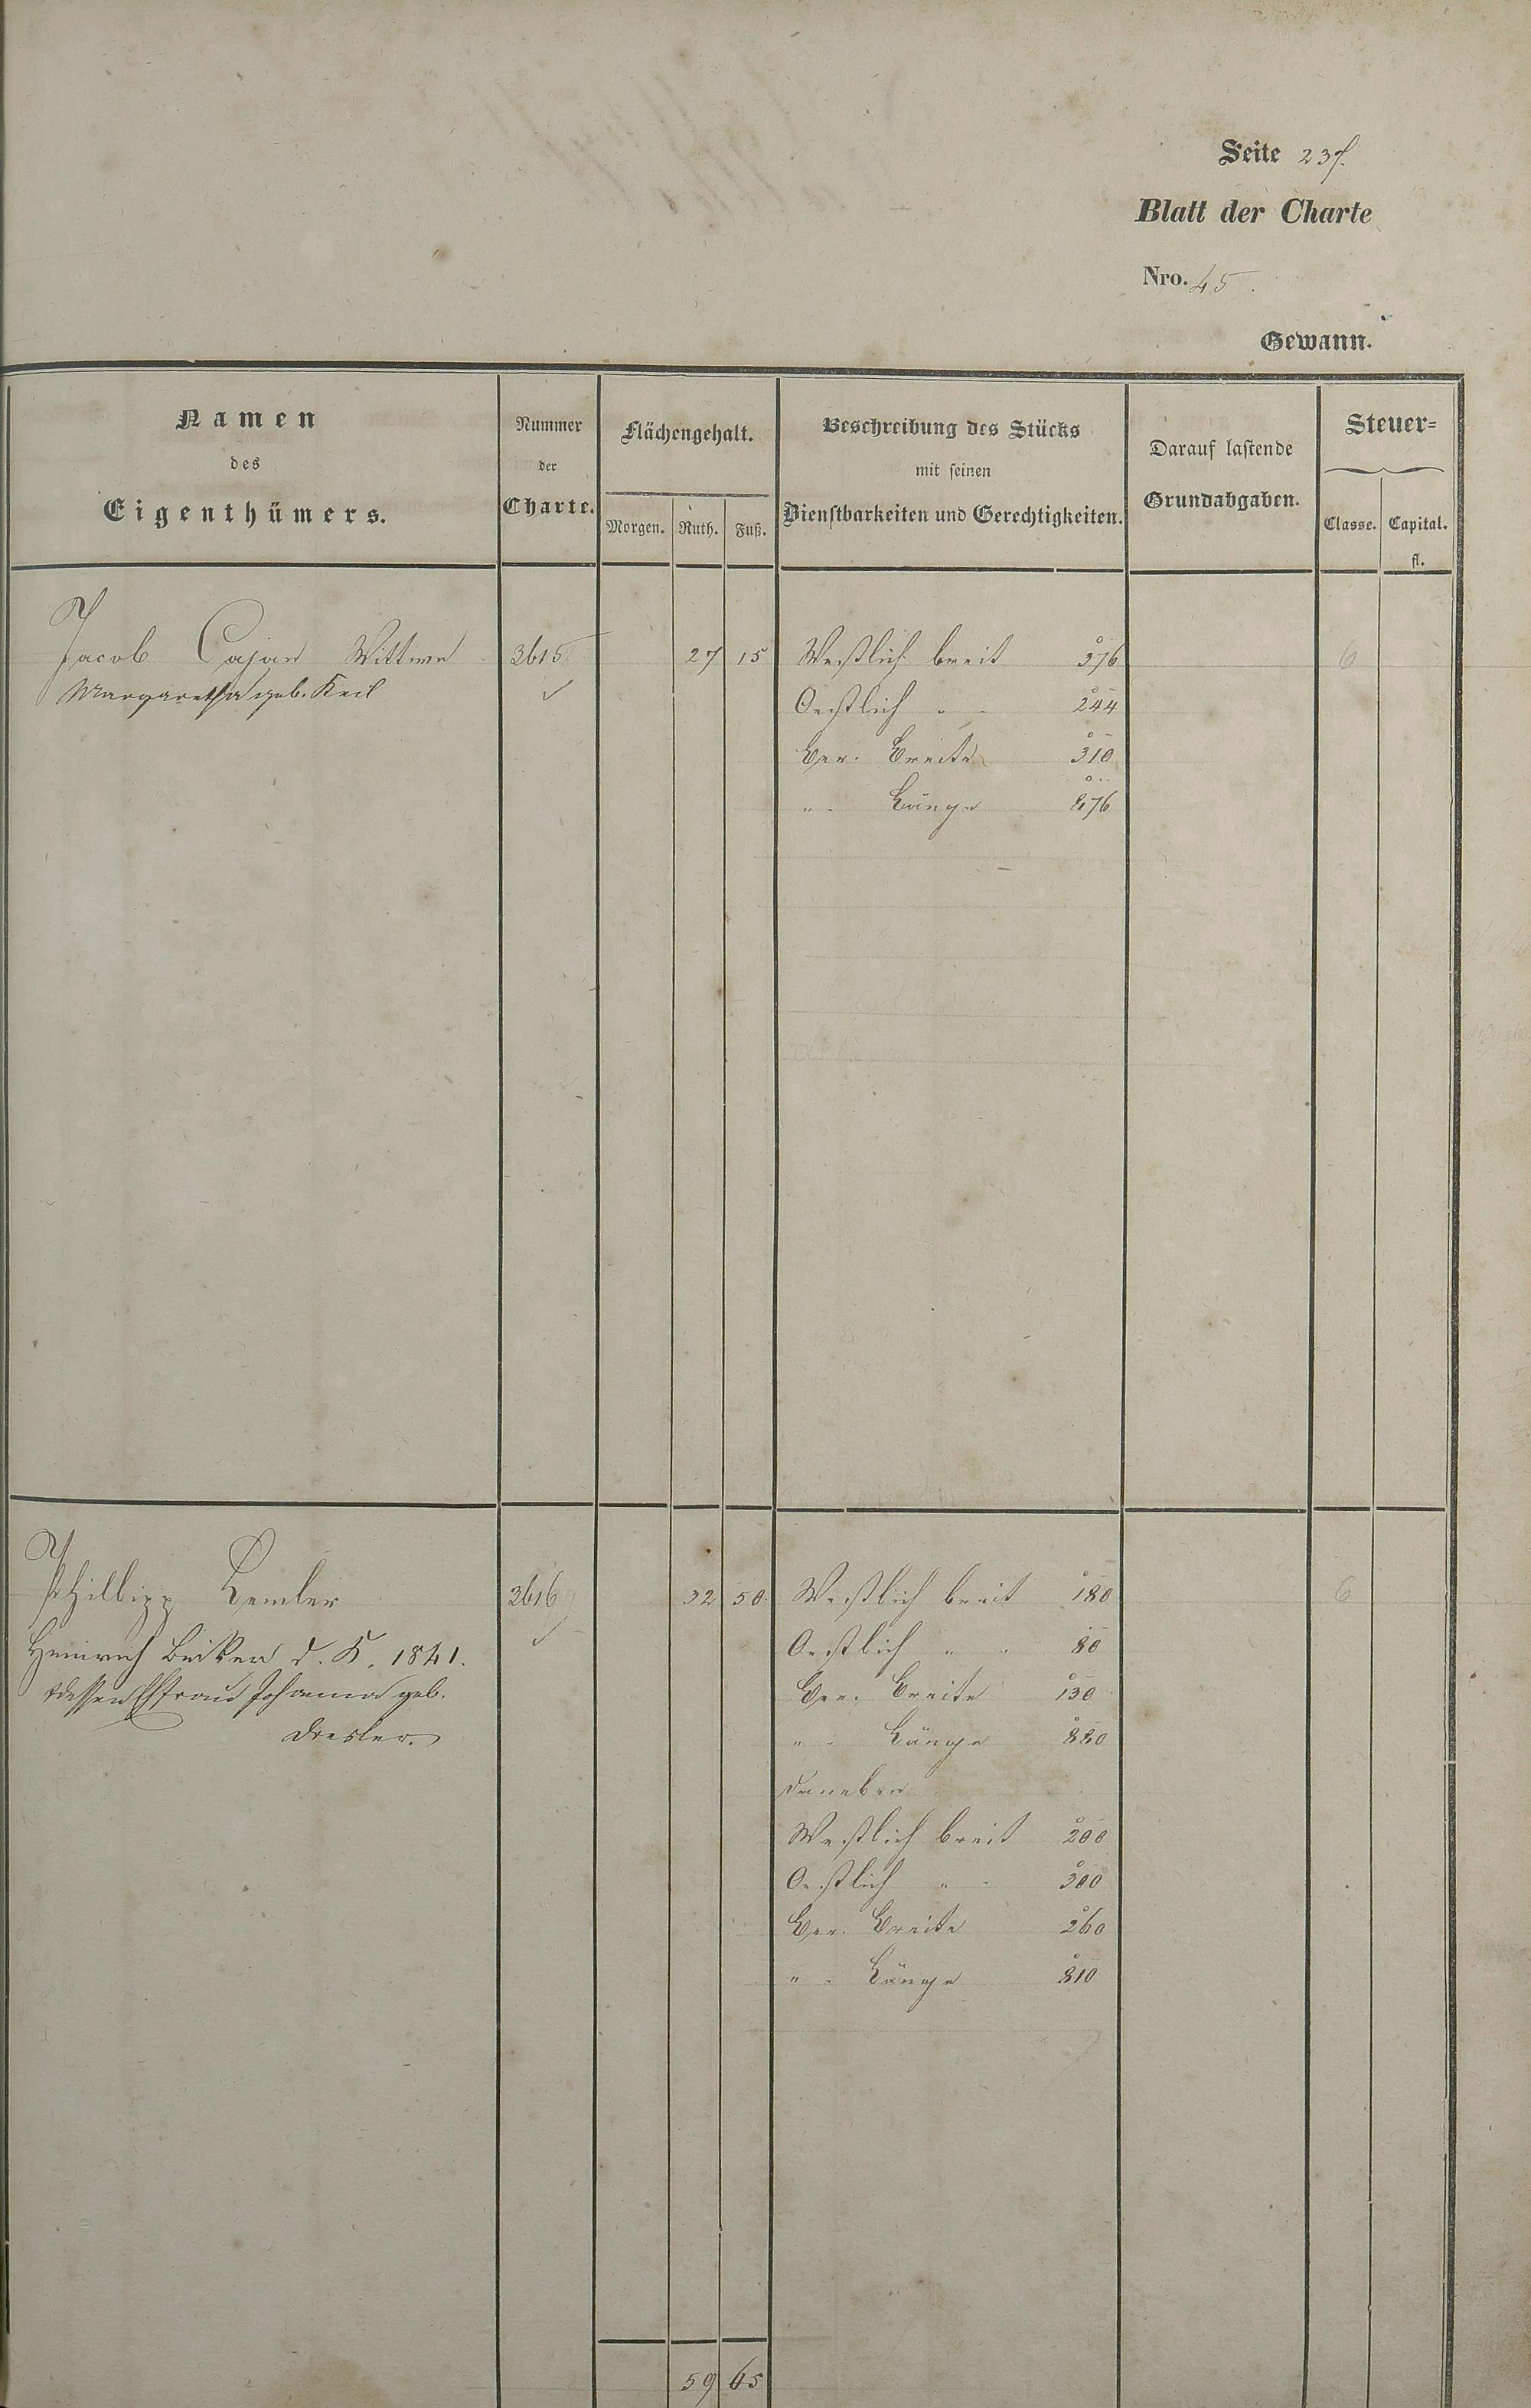 Seite 237.
Blatt der Charte
Nro. 45.
Gewann.
Namen
des
Eigenthümers.
Nummer
der
Charte.
Flächengehalt.
Morgen. Ruth. Fuß.
Beschreibung des Stücks
mit seinen
Dienstbarkeiten und Gerechtigkeiten.
Darauf lastende
Grundabgaben.
Steuer=
Classe. Capital.
fl.
Jacob Cajan Wittwe 3615 27 15 Westlich breit 376 6
Margaretha geb. Keil ✓
Oestlich " - 244
Ber. Breite 310
" - Länge 876
Philipp Lemler 3616 32 50 Westlich breit 180 6
Heinrich Becker d. K. 1841. ✓ Oestlich " - 80
dessen Ehfrau Johanna geb. Ber. Breite 130
Dresler. " - Länge 880
daneben
Westlich breit 200
Oestlich " - 300
Ber. Breite 260
" - Länge 810
59 65